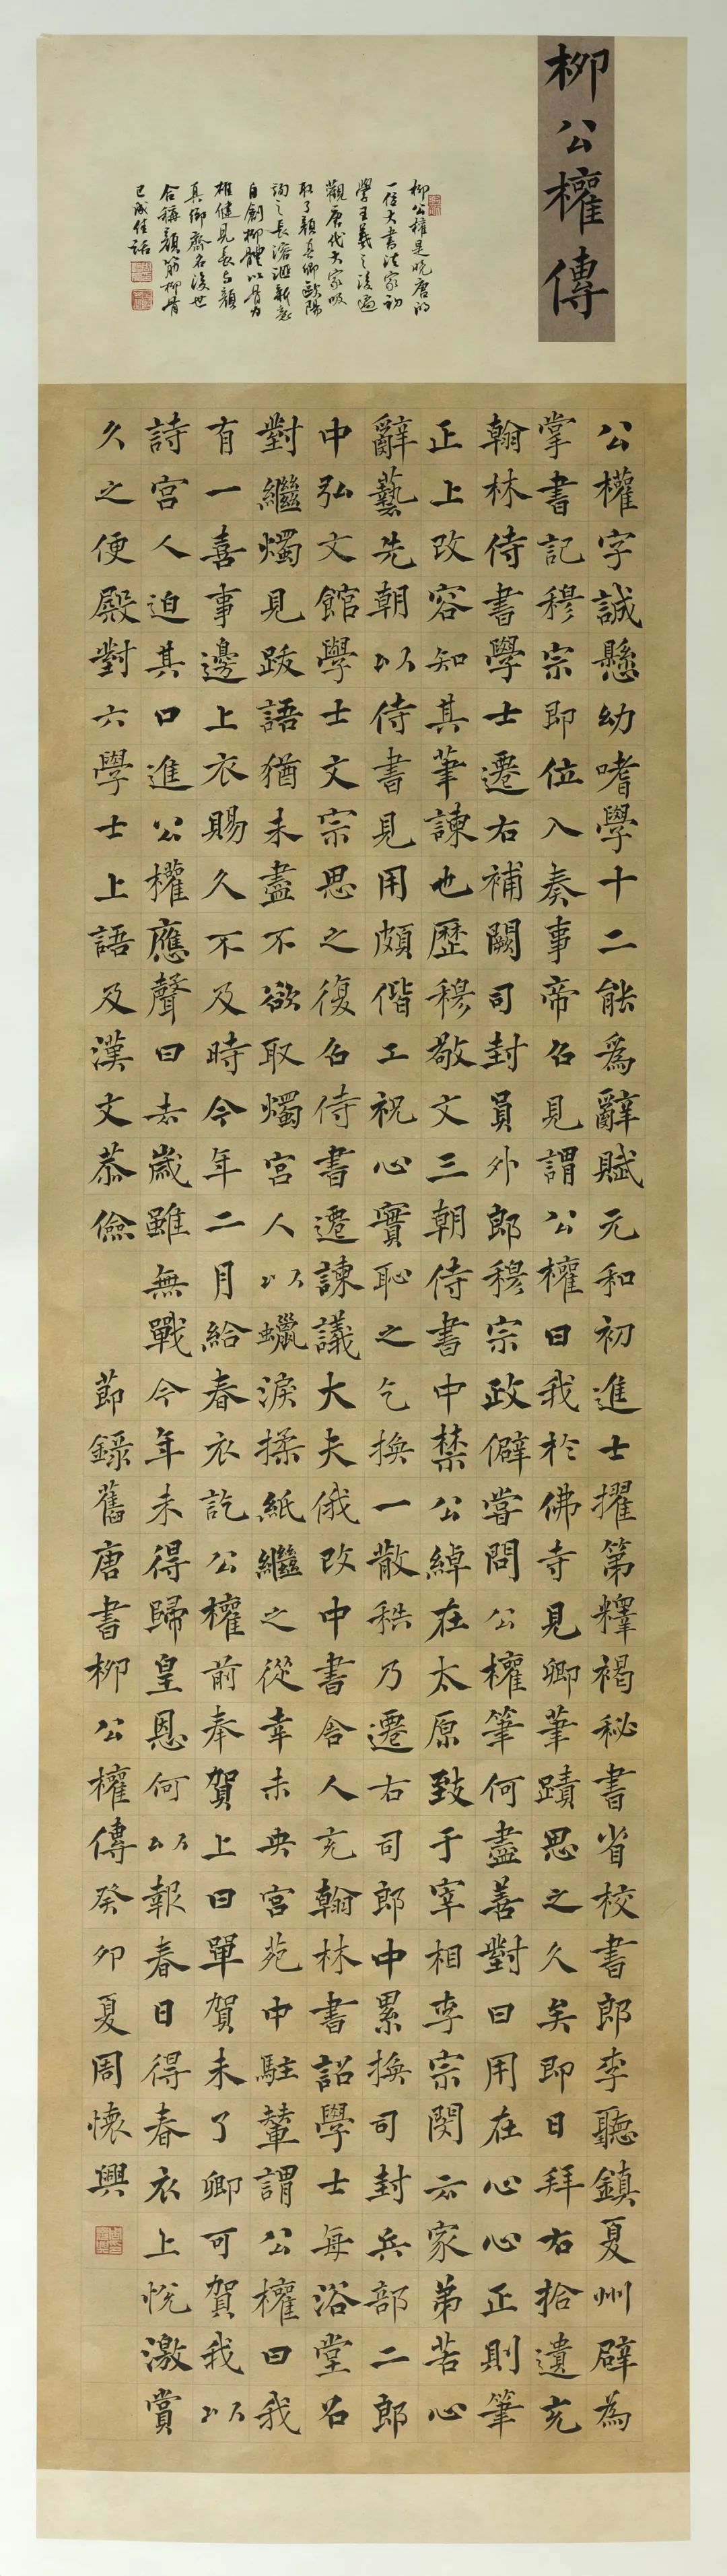 柳公權傳
柳公權是晚唐的
一位大書法家初
學王羲之後遍
觀唐代大家吸
取了顏真卿歐陽
詢之長溶匯新意
自創柳體以骨力
雄健見長与顏
真卿齊名後世
合稱顏筋柳骨
公權字誠懸幼嗜學十二能為辭賦元和初進士擢第釋褐秘書省校書郎李聽鎮夏州辟為
掌書記穆宗即位入奏事帝召見謂公權曰我於佛寺見卿筆蹟思之久矣即日拜右拾遺充
翰林侍書學士遷右補闕司封員外郎穆宗政僻嘗問公權筆何盡善對曰用在心心正則筆
正上改容知其筆諫也歷穆敬文三朝侍書中禁公綽在太原致于宰相李宗閔云家弟苦心
辭藝先朝以侍書見用頗偕工祝心實恥之乞換一散秩乃遷右司郎中累換司封兵部二郎
中弘文館學士文宗思之復召侍書遷諫議大夫俄改中書舍人充翰林書詔學士每浴堂召
對繼燭見跋語猶未盡不欲取燭宮人以蠟淚揉紙繼之從幸未央宮苑中駐輦謂公權曰我
有一喜事邊上衣賜久不及時今年二月給春衣訖公權前奉賀上曰單賀未了卿可賀我以
詩宮人迫其口進公權應聲曰去歲雖無戰今年未得歸皇恩何以報春日得春衣上悅激賞
久之便殿對六學士上語及漢文恭儉 節錄舊唐書柳公權傳癸卯夏周懷興